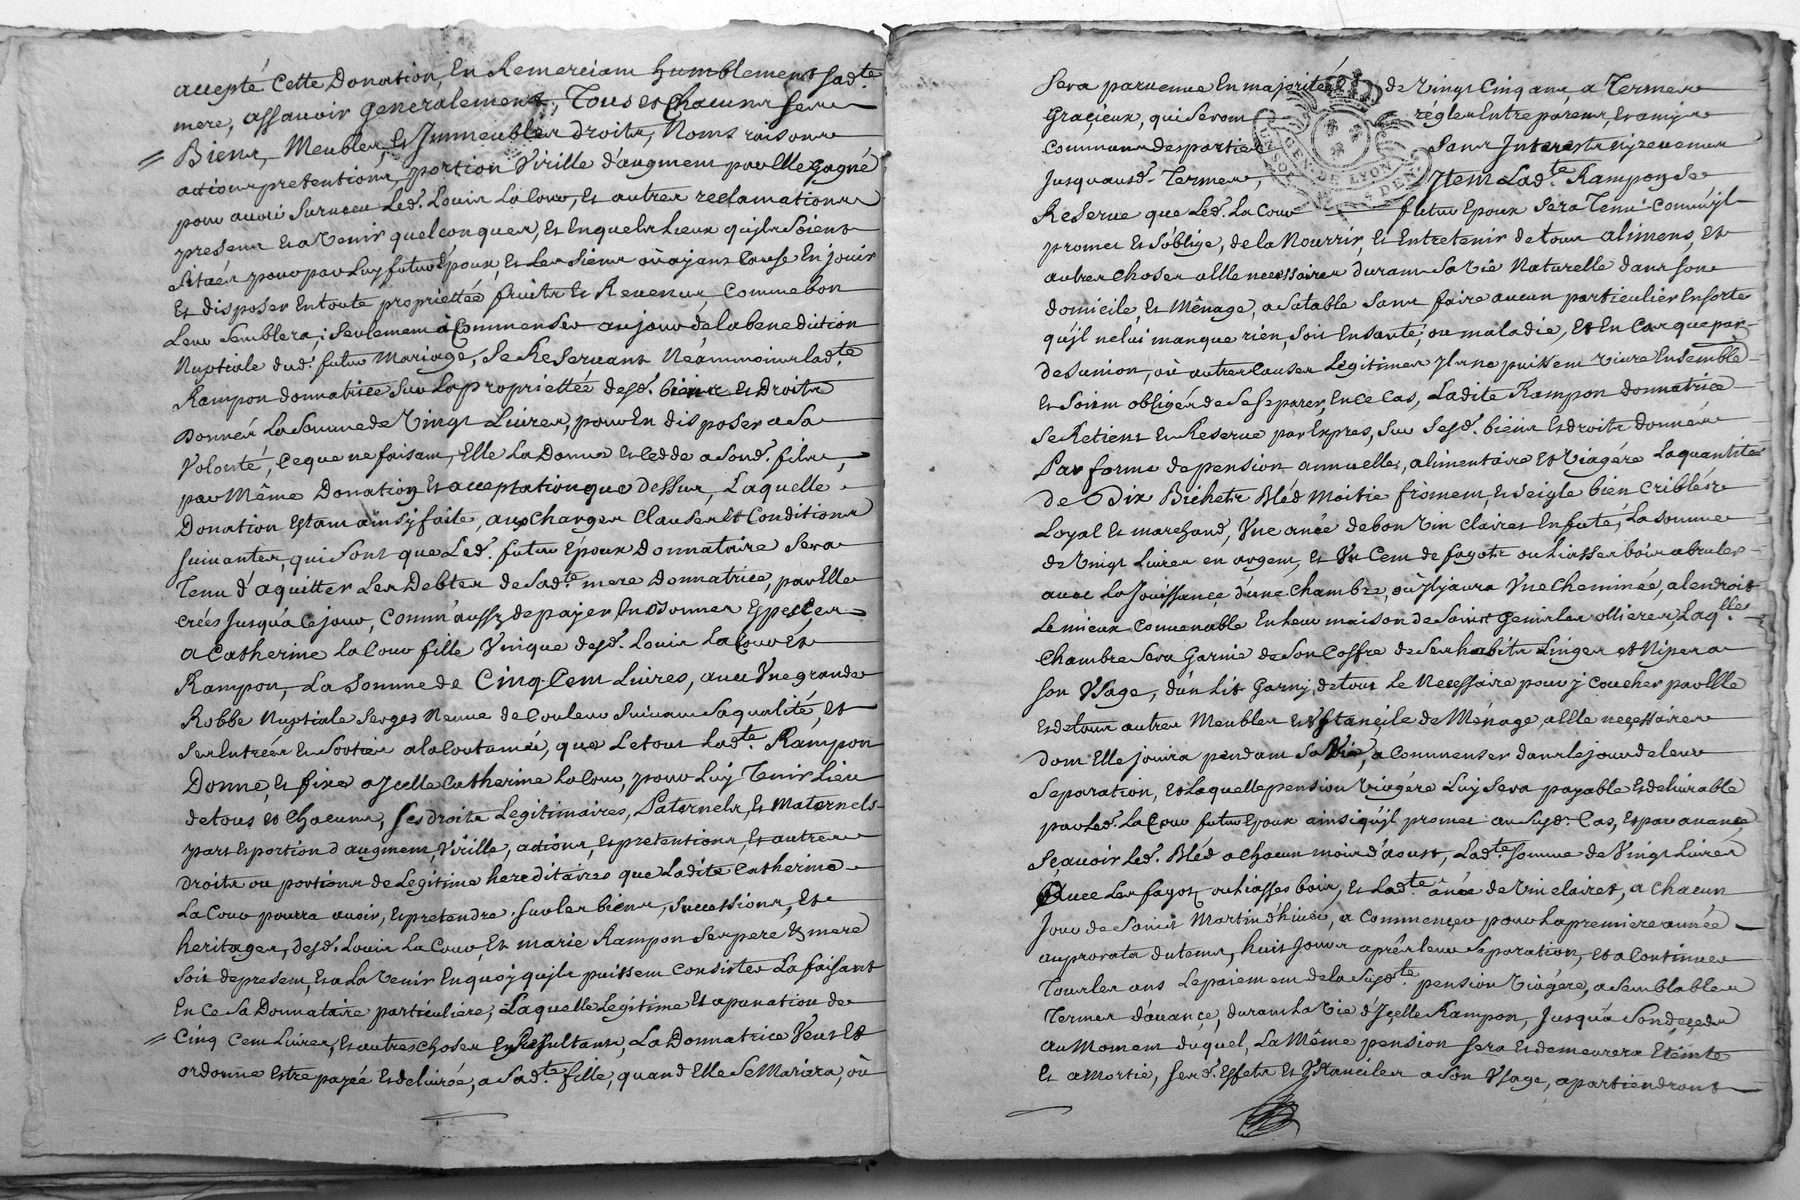 accepté Cette Donation, En Remerciant humblement sad.te
mere, assavoir generalement, Tous et Chacuns ses
Biens, Meubles, et Jmmeubles droits, Noms raisons
actions pretentions, portion Virille d'augment par Elle gagné
pour avoir Survecu Led. Louis La Cour, et autres reclamations
presens et a Venir quelconques, Et En quels Lieux qu'jls Soient
Situés pour par Luy futur Epoux, et Les Siens où ayant Cause En jouir
Et disposer En toute proprietté fruits et Revenus, Comme bon
Leur Semblera, Seulement à Commenser au jour de la benediction
Nuptiale dud. futur Mariage, Se Reservant Neammoins lad.te
Rampon donnatrice Sur La proprietté desd. biens et Droits
Donnés La Somme de Vingt Livres, pour En disposer a Sa
Volonté, Ce que ne faisant, Elle La Donne et Cedde a Sond. fils,
par Même Donation et acceptation que Dessus, Laquelle
Donation Estant ainsy faite, aux Charges Clauses Et Conditions
suivantes, qui Sont que Led. futur Epoux Donnataire Sera
Tenu d'aquitter Les Debtes de Sad.te mere Donnatrice, par Elle
créés Jusqu'à Ce jour, Comm'aussy de payer En Bonnes Especes
a Catherine la Cour fille Vnique desd. Louis La Cour Et
Rampon, La Somme de Cinq Cent Livres, avec Vne grande
Robbe Nuptiale Serges Neuve de Couleur Suivant Sa qualité, Et
Ses Entrées Et Sorties a la Coutumée, que Le tout Lad.te Rampon
Donne, et fixe a Jcelle Catherine La Cour, pour Luy Tenir Lieu
de tous et Chacuns, ses droits Legitimaires, Paternels, Et Maternels
part Et portion d'augment, Virille, actions, Et pretentions, Et autres
droits ou portions de Legitime hereditaires que Ladite Catherine
La Cour pourra avoir, Et pretendre Sur les biens, Successions, Et
heritages, desd. Louis La Cour, Et marie Rampon Ses pere Et mere
Soit de present, Et a La Venir En quoy qu'jls puissent Consister La faisant
En Ce Sa Donnataire particuliere, Laquelle Legitime Et apanation de
Cinq Cent Livres, Et autres choses En Resultants, La Donnatrice Veut Et
ordonne Estre payée Et delivrée, a Sad.te fille, quand Elle Se Mariera, où
Sera parvenue En majoritée de Vingt Cinq ans, a Termes
Graçieux, qui Seront réglés Entre parens, Et amis
Communs des parties Sans Interests nj revenus
Jusquausd. Termes, Jtem Lad.te Rampon Se
Reserve que Led. La Cour futur Epoux Sera Tenu Comm'jl
promet Et S'oblige, de la Nourrir, Et Entretenir de tous alimens, Et
autres choses a Elle necessaires durant Sa Vie Naturelle dans Son
domicile, Et Mênage, a Sa table Sans faire aucun particulier En sorte
qu'jl ne lui manque rien, Soit En Santé, ou maladie, Et En Cas que par
desunion, où autres Causes Legitimes jls ne puissent vivre Ensemble
Et Soient obligés de Se Separer, En Ce Cas, Ladite Rampon donnatrice
Se Retient Et Reserve par Expres, Sur Sesd. biens Et droits donnés
Par forme de pension annuelle, alimentaire Et Viagére La quantité
de Dix Bichets Bléd Moitié froment, Et Seigle bien Criblés
Loyal Et marchand, Vne anée de bon Vin clairet En futé, La Somme
de Vingt Livres en argent, Et Vn Cent de fagots ou Liasses bois a bruler
avec La Jouissançe d'une Chambre, où Jl y aura Vne Cheminée, a lendroit
Le mieux Convenable En Leur maison de Saint Genis les ollieres, Laq.lle
Chambre Sera Garnie de Son Coffre de Ses habits Linges et Nipes a
Son Vsage, d'un Lit Garnj de tout Le Necessaire pour j coucher par Elle
Et de tous autres Meubles et Vstançile de Ménage, a Elle neçessaires
dont Elle jouira pendant Sa Vie, a Commenser dans le jour de leur
Separation, Et Laquelle pension Viagére Luy Sera payable Et delivrable
par Led. La Cour futur Epoux ainsi qu'jl promet au Susd. Cas, Et par avance
Sçavoir Led. Bléd a Chacun mois d'aoust, Lad.te Somme de Vingt Livres
Avec Les fagots ou Liasses bois, Et Lad.te anée de Vin clairet, a Chacun
Jour de Saint Martin d'hiver, a Commençer pour La premiere année
au prorata du tems, huit Jours après leur Separation, et a Continuer
Tous les ans Le paiement de la Susd.te pension Viagére, a Semblables
Termes d'avançe, durant La Vie d'Jcelle Rampon, Jusqu'à Son deçeds
au Moment duquel, La Même pension Sera Et demeurera Eteinte
Et amortie, Sesd. Effets Et Vstanciles a Son Vsage, apartiendront
GEN. DE LYON
DEN.